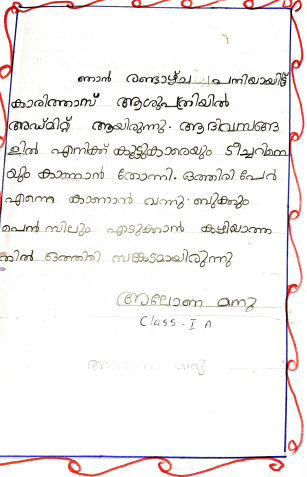 ഞാൻ രണ്ടാഴ്ച പനിയായിട്ട്
കാരിത്താസ് ആശുപത്രിയിൽ
അഡ്മിറ്റ് ആയിരുന്നു. ആ ദിവസങ്ങ
ളിൽ എനിക്ക് കൂട്ടുകാരെയും ടീച്ചറിനെ
യും കാണാൻ തോന്നി. ഒത്തിരി പേർ
എന്നെ കാണാൻ വന്നു. ബുക്കും
പെൻസിലും എടുക്കാൻ കഴിയാത്ത
തിൽ ഒത്തിരി സങ്കടമായിരുന്നു
അലോണ മനു
Class. I A